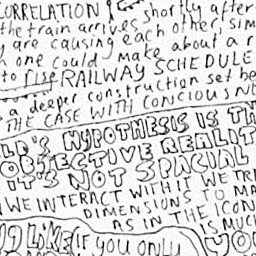 CORRELATION
shortly after
the train arrives
each other, sim
y are causing
h one could make about a r
to rise RAILWAY SCHEDULE
a deeper construction set be
THE CASE WITH CONCIOUSNE
LD'S HYPOTHESIS IS TH
OBJECTIVE REALIT
IT'S NOT SPACIAL
WE INTERACT WITH IT WE TRE
DIMENSIONS TO MA
AS IN THE ICON
IS MUCH
LIKE (IF YOU ONLY YOU